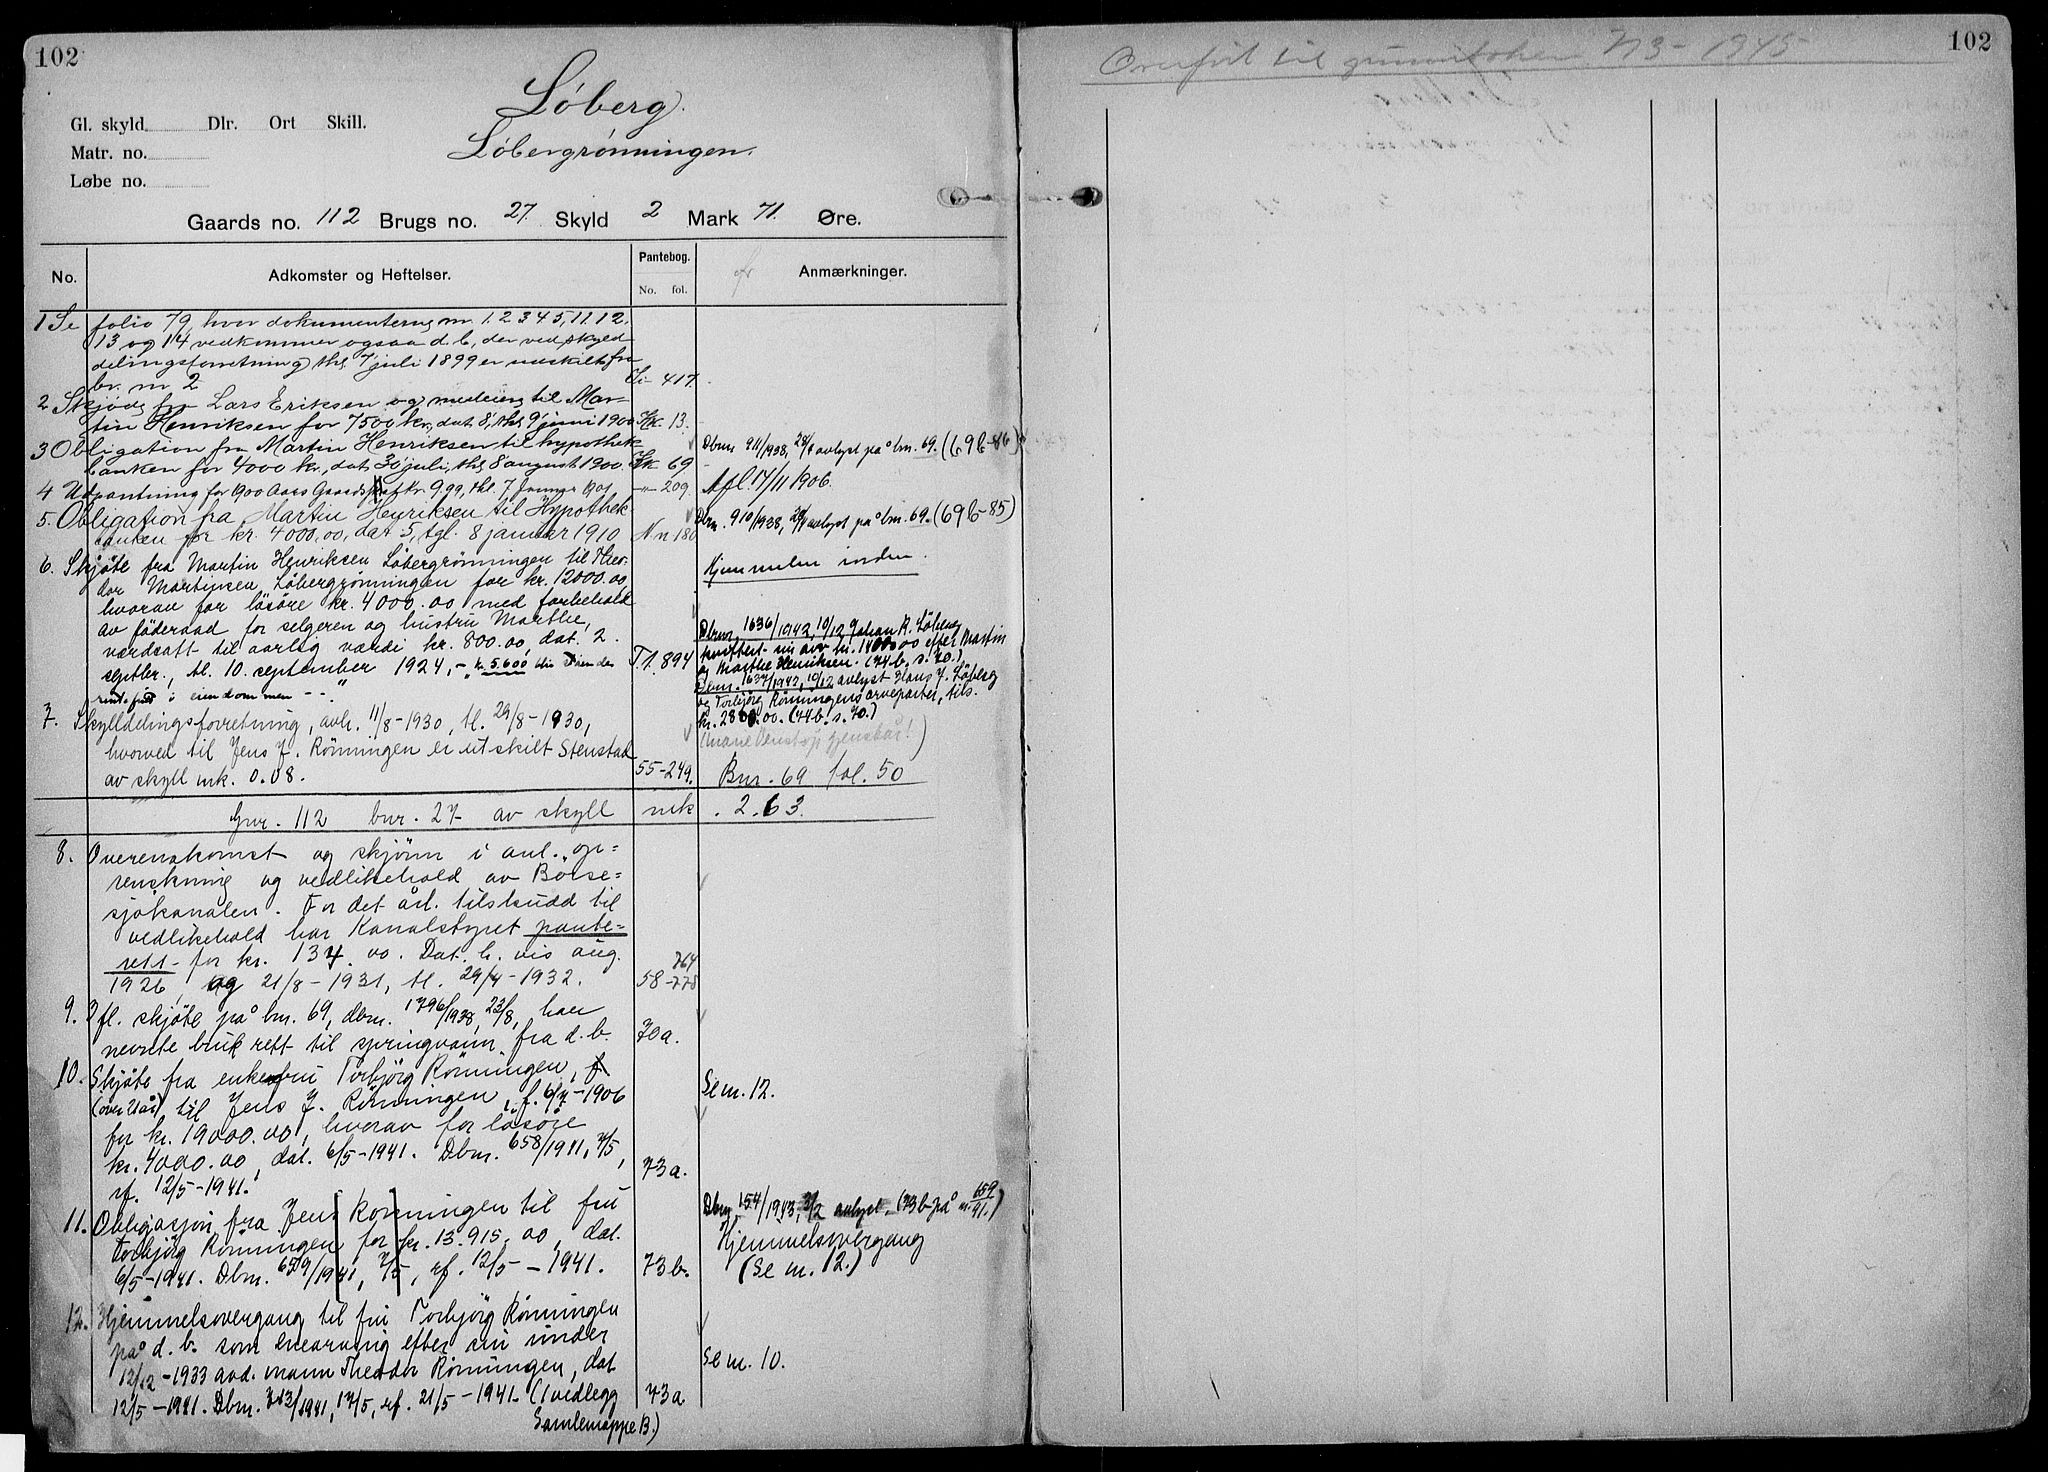 102
Løberg.
Løbergrønningen.
Gl. skyld Dlr. Ort Skill.
Matr. no.
Løbe no.
Gaards no. 112 Brugs no. 27. Skyld 2 Mark 71. Øre.
No. Adkomster og Heftelser. Pantebog. No. fol. Anmærkninger.
1 Se folio 79, hvor dokumenterne nr. 1. 2 3 4 5, 11. 12.
13 og 14 vedkommer ogsaa d. b, der ved skyld
delingsforretning thl. 7 juli 1899 er udskilt fra
br. nr 2 417.
2 Skjøde fra Lars Eriksen og medeier til Mar-
tin Henriksen for 7500 kr, dat 8, thl. 9 juni 1900 Kk. 13.
3 Obligation fra Martin Henriksen til hypothek-
banken for 4000 kr, dat. 30 juli, thl. 8 august 1900. Kk 69
Dbnr. 911/1938, 28/4 avlyst på bnr. 69. (69b-86)
4 Udpantning for 1900 Aars Gaardskat Kr. 9.99, thl. 7 Januar 1901 -"- 209. Afl. 17/11 1906.
5. Obligation fra Martin Henriksen til Hypothek-
banken for kr. 4000,00, dat 5, tgl. 8 januar 1910 Nn 180
Dbnr. 910/1938, 28/4 avlyst på bnr. 69. (69b-85)
6. Skjöte fra Martin Henriksen Løbergrønningen til Theo-
dor Martinsen Löbergrønningen for kr. 12000.00,
hvorav for lösöre kr. 4000.00 med forbehold
av föderaad for selgeren og hustru Marthe,
verdsatt til aarlig værdi kr. 800.00, dat. 2.
septbr., tl. 10. september 1924, - kr. 5.600 blir
rentefrit i eiendommen - - "
T.1. 894
Hjemmelen inden.
Dbnr. 1636/1942, 10/12 Johan R. Löberg
kvittert sin arv kr. 1400.00 efter Martin
og Marthe Henriksen. (74b. s. 70.)
Dbnr. 1637/1942, 10/12 avlyst Hans J. Löberg
og Torbjörg Rønningens arveparter, tils.
kr. 2800.00. (74b. s. 70.)
7. Skylddelingsforretning, avh. 11/8-1930, tl. 29/8-1930,
hvorved til Jens J. Rønningen er utskilt Stenstad
av skyll mk. 0.08. 55-249. Bnr. 69 fol. 50
Gnr. 112 bnr. 27 av skyll mk. 2.63.
8. Overenskomst og skjønn i anl. op-
renskning og vedlikehold av Börse-
sjökanalen. For det årl. tilskudd til
vedlikehold har Kanalstyret pante-
rett for kr. 134.00. Dat. h. vis aug.
1926, og 21/8-1931, tl. 29/4-1932. 58 - 764 778
9. Ifl. skjöte på bnr. 69, dbnr. 1796/1938, 23/8, har
nevnte bruk rett til springvann fra d. b. 70a.
10. Skjöte fra enkefru Torbjörg Rønningen,
(over 21 år) til Jens J. Rønningen, f. 6/7-1906
for kr. 19000.00, hvorav for lösöre
kr. 4000.00, dat. 6/5-1941. Dbnr. 658/1941, 7/5,
rf. 12/5-1941. 73a. Se nr. 12.
11. Obligasjon fra Jens Rønningen til fru
Torbjörg Rønningen for kr. 13.915.00, dat.
6/5-1941. Dbnr. 659/1941, 7/5, rf. 12/5-1941. 73b.
Dbnr. 154/1943, 2/2 avlyst. (73b på nr. 659/41.)
Hjemmelsovergang
(Se nr. 12.)
12. Hjemmelsovergang til fru Torbjörg Rønningen
på d. b. som enearving efter sin under
12/12-1933 avd. mann Theodor Rønningen, dat
12/5-1941. Dbnr. 713/1941, 17/5, rf. 21/5-1941. (1 vedlegg
Samlemappe B.) 73a Se nr. 10.
Overfört til grunnboken 7/3-1945
102